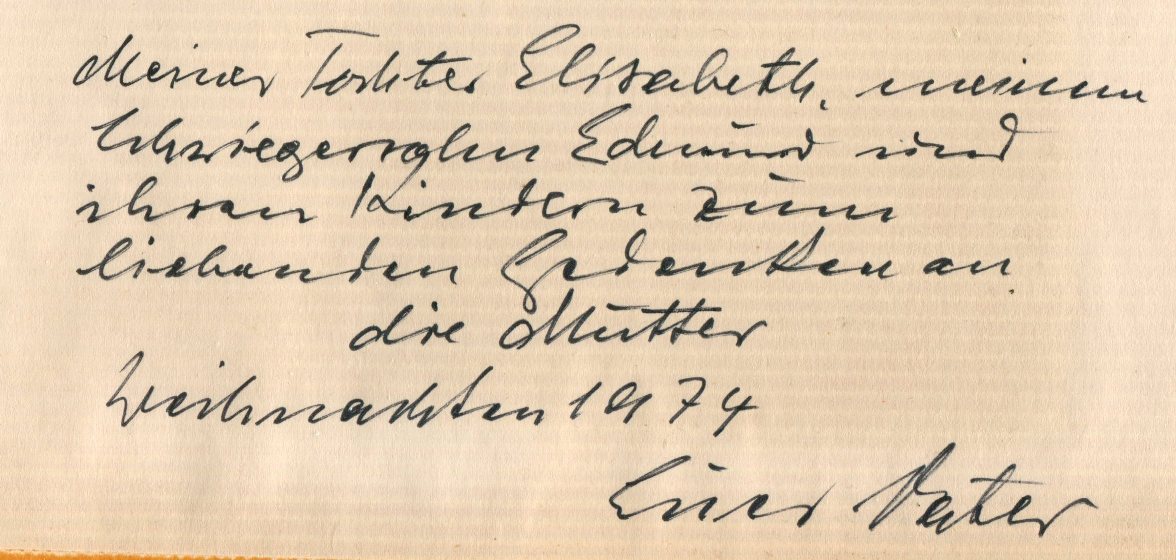 Meiner Tochter Elisabeth, meinem
Schwiegersohn Edmund und
ihren Kindern zum
liebenden Gedenken an
die Mutter
Weihnachten 1974
Euer Vater